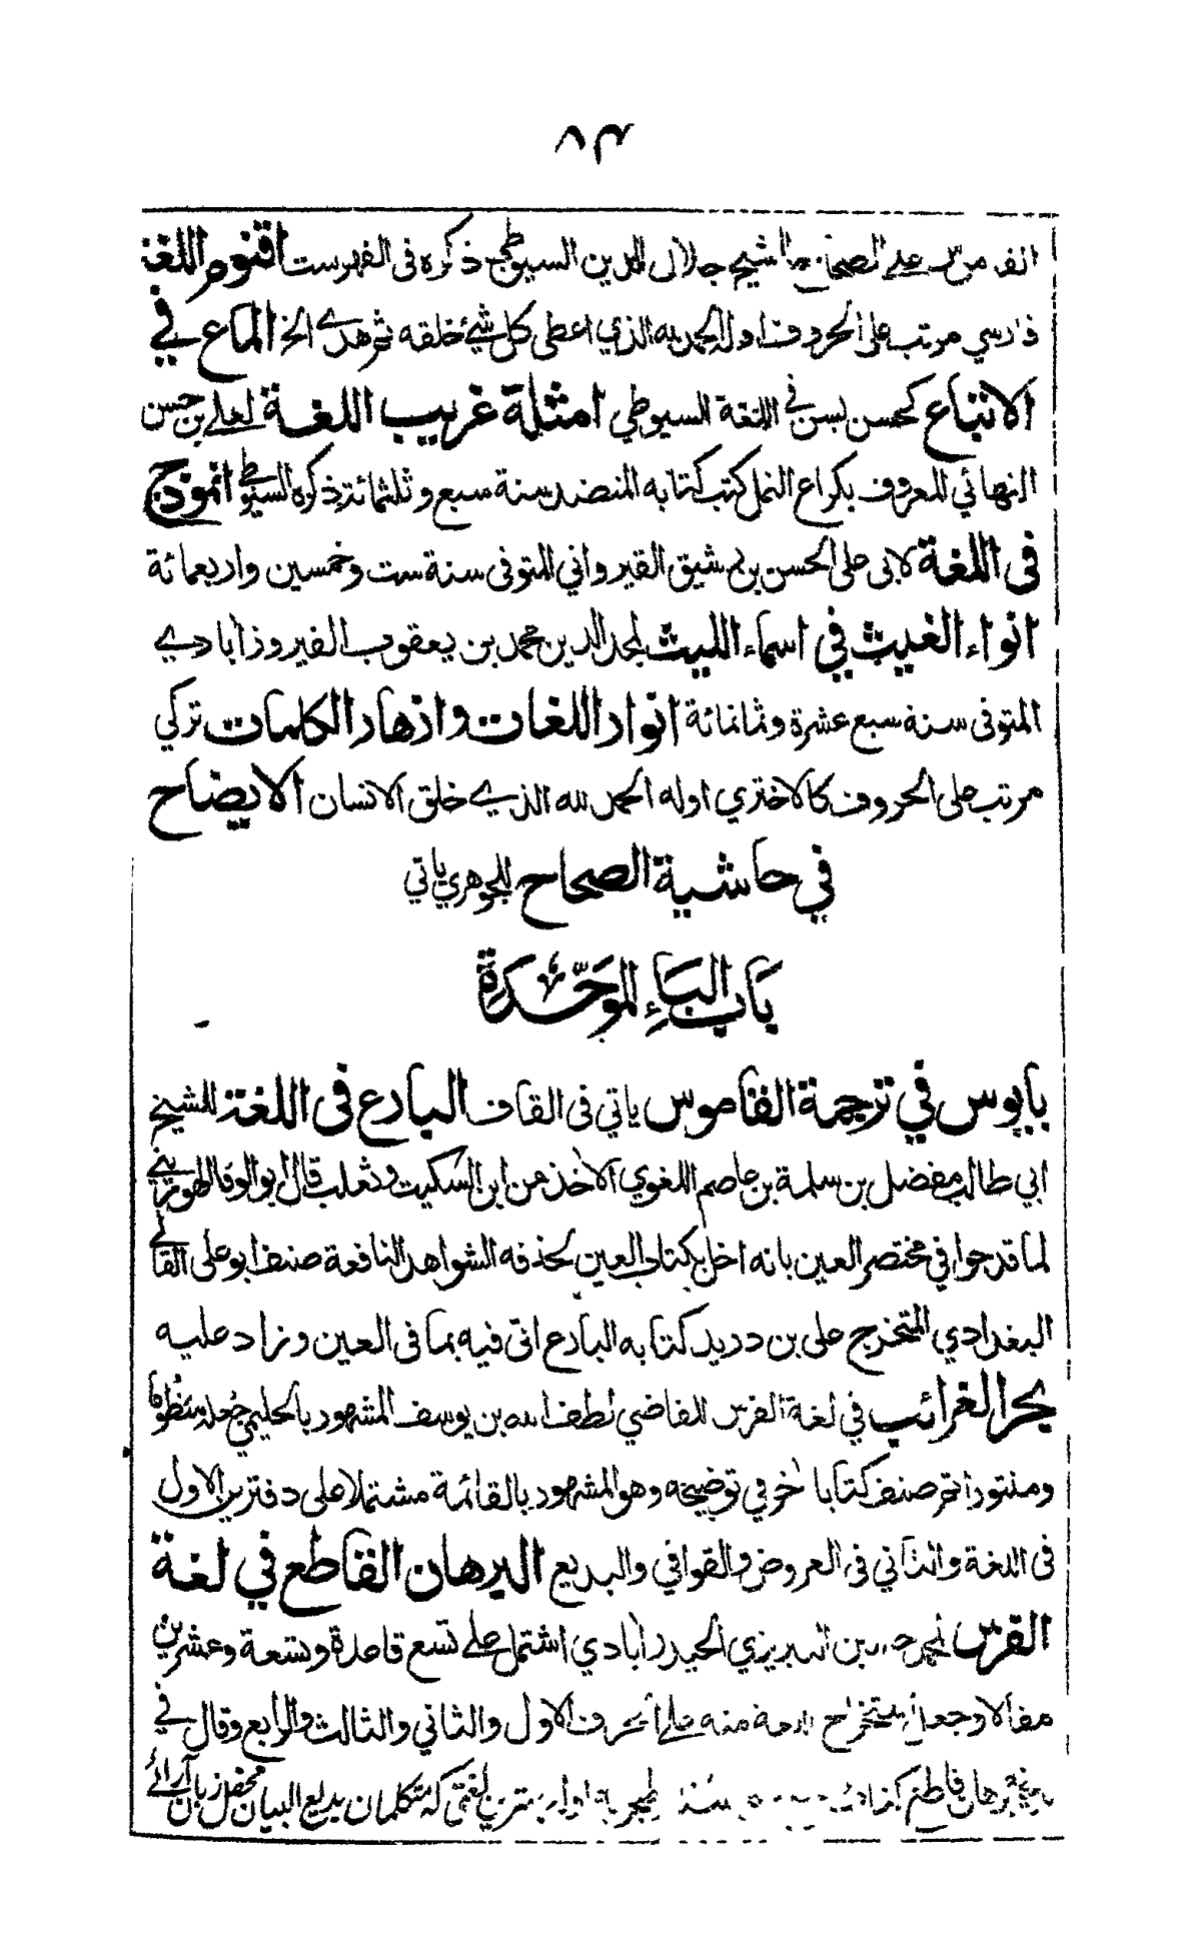 ٨٣
على الصحاح للشيخ جلال الدين السيوطي ذكره في الفهرست اقنوم اللغة
فارسي مرتب على الحروف اوله الحمد لله الذي اعطى كل شئ خلقه ثم هدى الخ الماع في
الاتباع كحسن بسن في اللغة السيوطي امثلة غريب اللغة لعلي بن حسن
الهنائي المعروف بكراع النمل كتب كتابه المنضد سنة سبع وثلثمائة ذكره السيوطي انموذج
في اللغة لابي علي الحسن بن رشيق القيرواني المتوفى سنة ست وخمسين واربعمائة
انواء الغيث في اسماء الليث لمجد الدين محمد بن يعقوب الفيروزآبادي
المتوفى سنة سبع عشرة وثمانمائة انوار اللغات وازهار الكلمات تركي
مرتب على الحروف كالاختري اوله الحمد لله الذي خلق الانسان الايضاح
في حاشية الصحاح للجوهري ياتي
بَابُ البَاءِ المُوَحَّدَةِ
بابوس في ترجمة القاموس ياتي في القاف البارع في اللغة للشيخ
ابي طالب مفضل بن سلمة بن عاصم اللغوي الآخذ من ابن السكيت وثعلب قال ابو الوفا الهوريني
لما قدحوا في مختصر العين بانه اخل بكتاب العين لحذفه الشواهد النافعة صنف ابو علي القالي
البغدادي المتخرج على بن دريد كتابه البارع اتى فيه بما في العين وزاد عليه
بحر الغرائب في لغة الفرس للقاضي لطف الله بن يوسف المشهور بالحليمي جعله منظوما
ومنثورا ثم صنف كتابا آخر في توضيحه وهو المشهور بالقائمة مشتملا على دفترين الاول
في اللغة والثاني في العروض والقوافي والبديع البرهان القاطع في لغة
الفرس لمحمد حسين التبريزي الحيدرآبادي اشتمل على تسع قاعدة وتسعة وعشرين
مقالا وجعل استخراج منه على الحرف الاول والثاني والثالث والرابع وقال في
برهان قاطع كه متكلمان بديع البيان محفل زبان آرائے